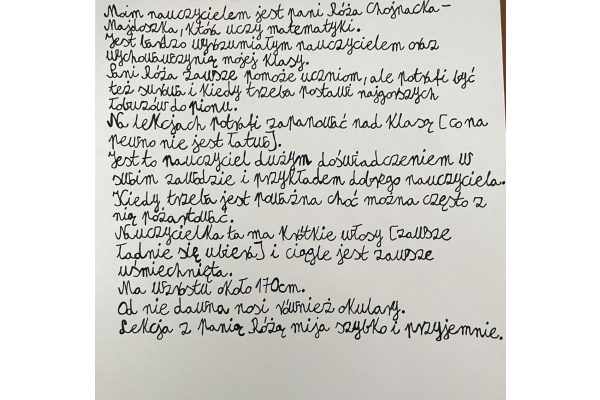 Moim nauczycielem jest pani Róża Chojnacka-
Majdoszka, która uczy matematyki.
Jest bardzo wyrozumiałym nauczycielem oraz
wychowawczynią mojej klasy.
Pani Róża zawsze pomoże uczniom, ale potrafi być
też surowa i kiedy trzeba postawi najgorszych
łobuzów do pionu.
Na lekcjach potrafi zapanować nad klasą [co na
pewno nie jest łatwe].
Jest to nauczyciel dużym doświadczeniem w
swoim zawodzie i przykładem dobrego nauczyciela.
Kiedy trzeba jest poważna choć można często z
nią pożartować.
Nauczycielka ta ma krótkie włosy [zawsze
ładnie się ubiera] i ciągle jest zawsze
uśmiechnięta.
Ma wzrostu około 170cm.
Od nie dawna nosi również okulary.
Lekcja z Panią Różą mija szybko i przyjemnie.